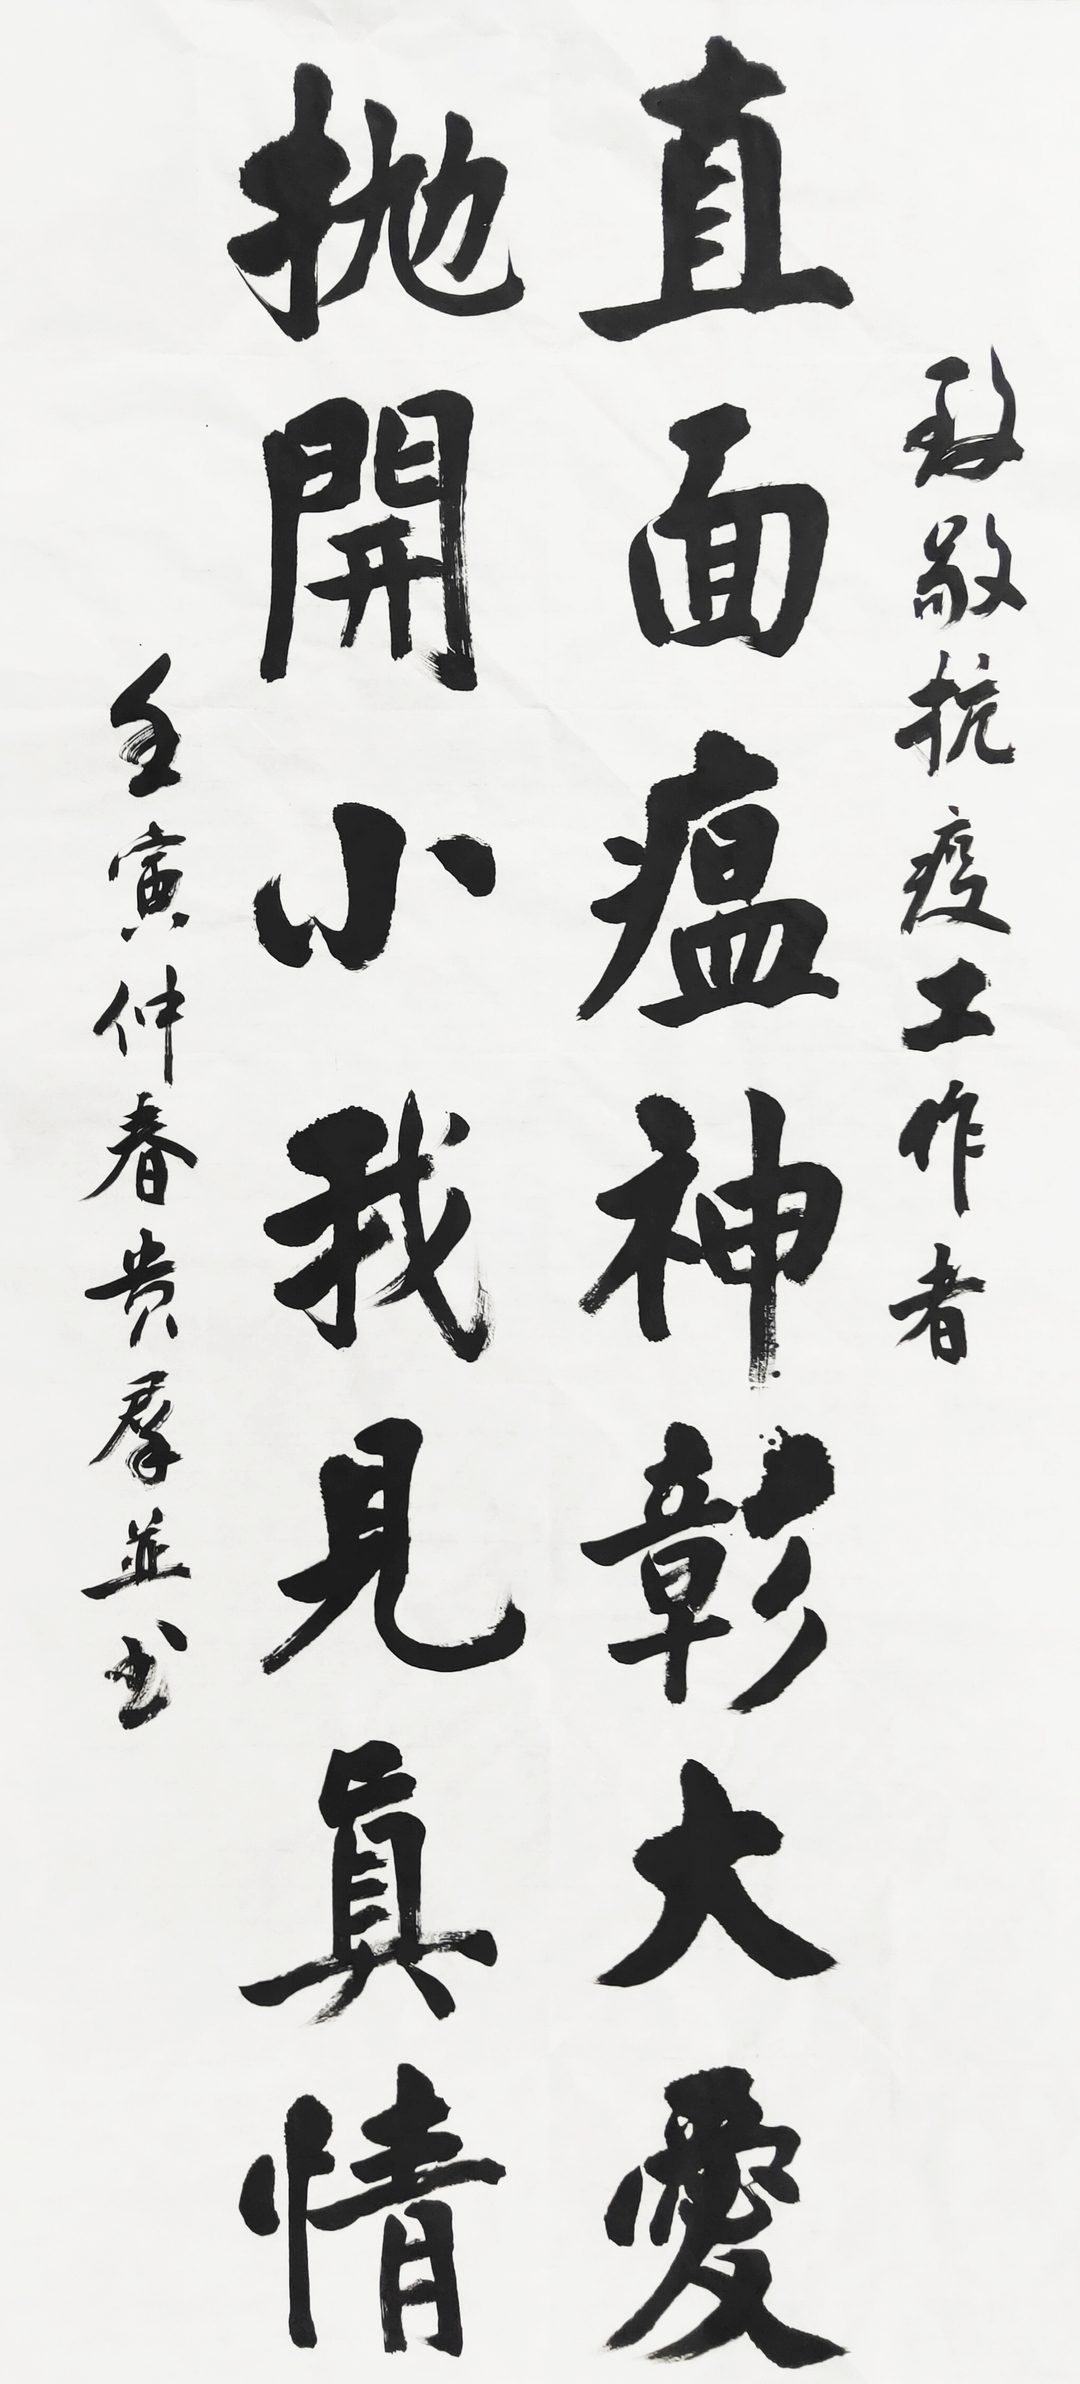 致敬抗疫工作者
直面瘟神彰大愛
抛開小我見真情
壬寅仲春贵群並书